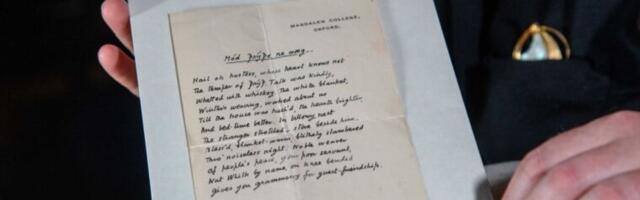 MAGDALEN COLLEGE,
OXFORD.
Mód Þrýþe ne wæg...
Hail oh hostess, whose heart knows not
The temper of Þrýþ! Talk was kindly,
Whetted with whiskey. The white blanket,
Winter's weaving, about us
Till the house was hush'd, the hearth brighter,
And bed-time better. In billowy nest
The stranger stretched, a stove beside him,
Bless'd, blanket-warm, blithely slumbered
Thro' noiseless night. Noble weaver
Of people's peace, your poor servant,
Nat Whilk by name, on knee bended
gives you grammercy for guest-friendship.